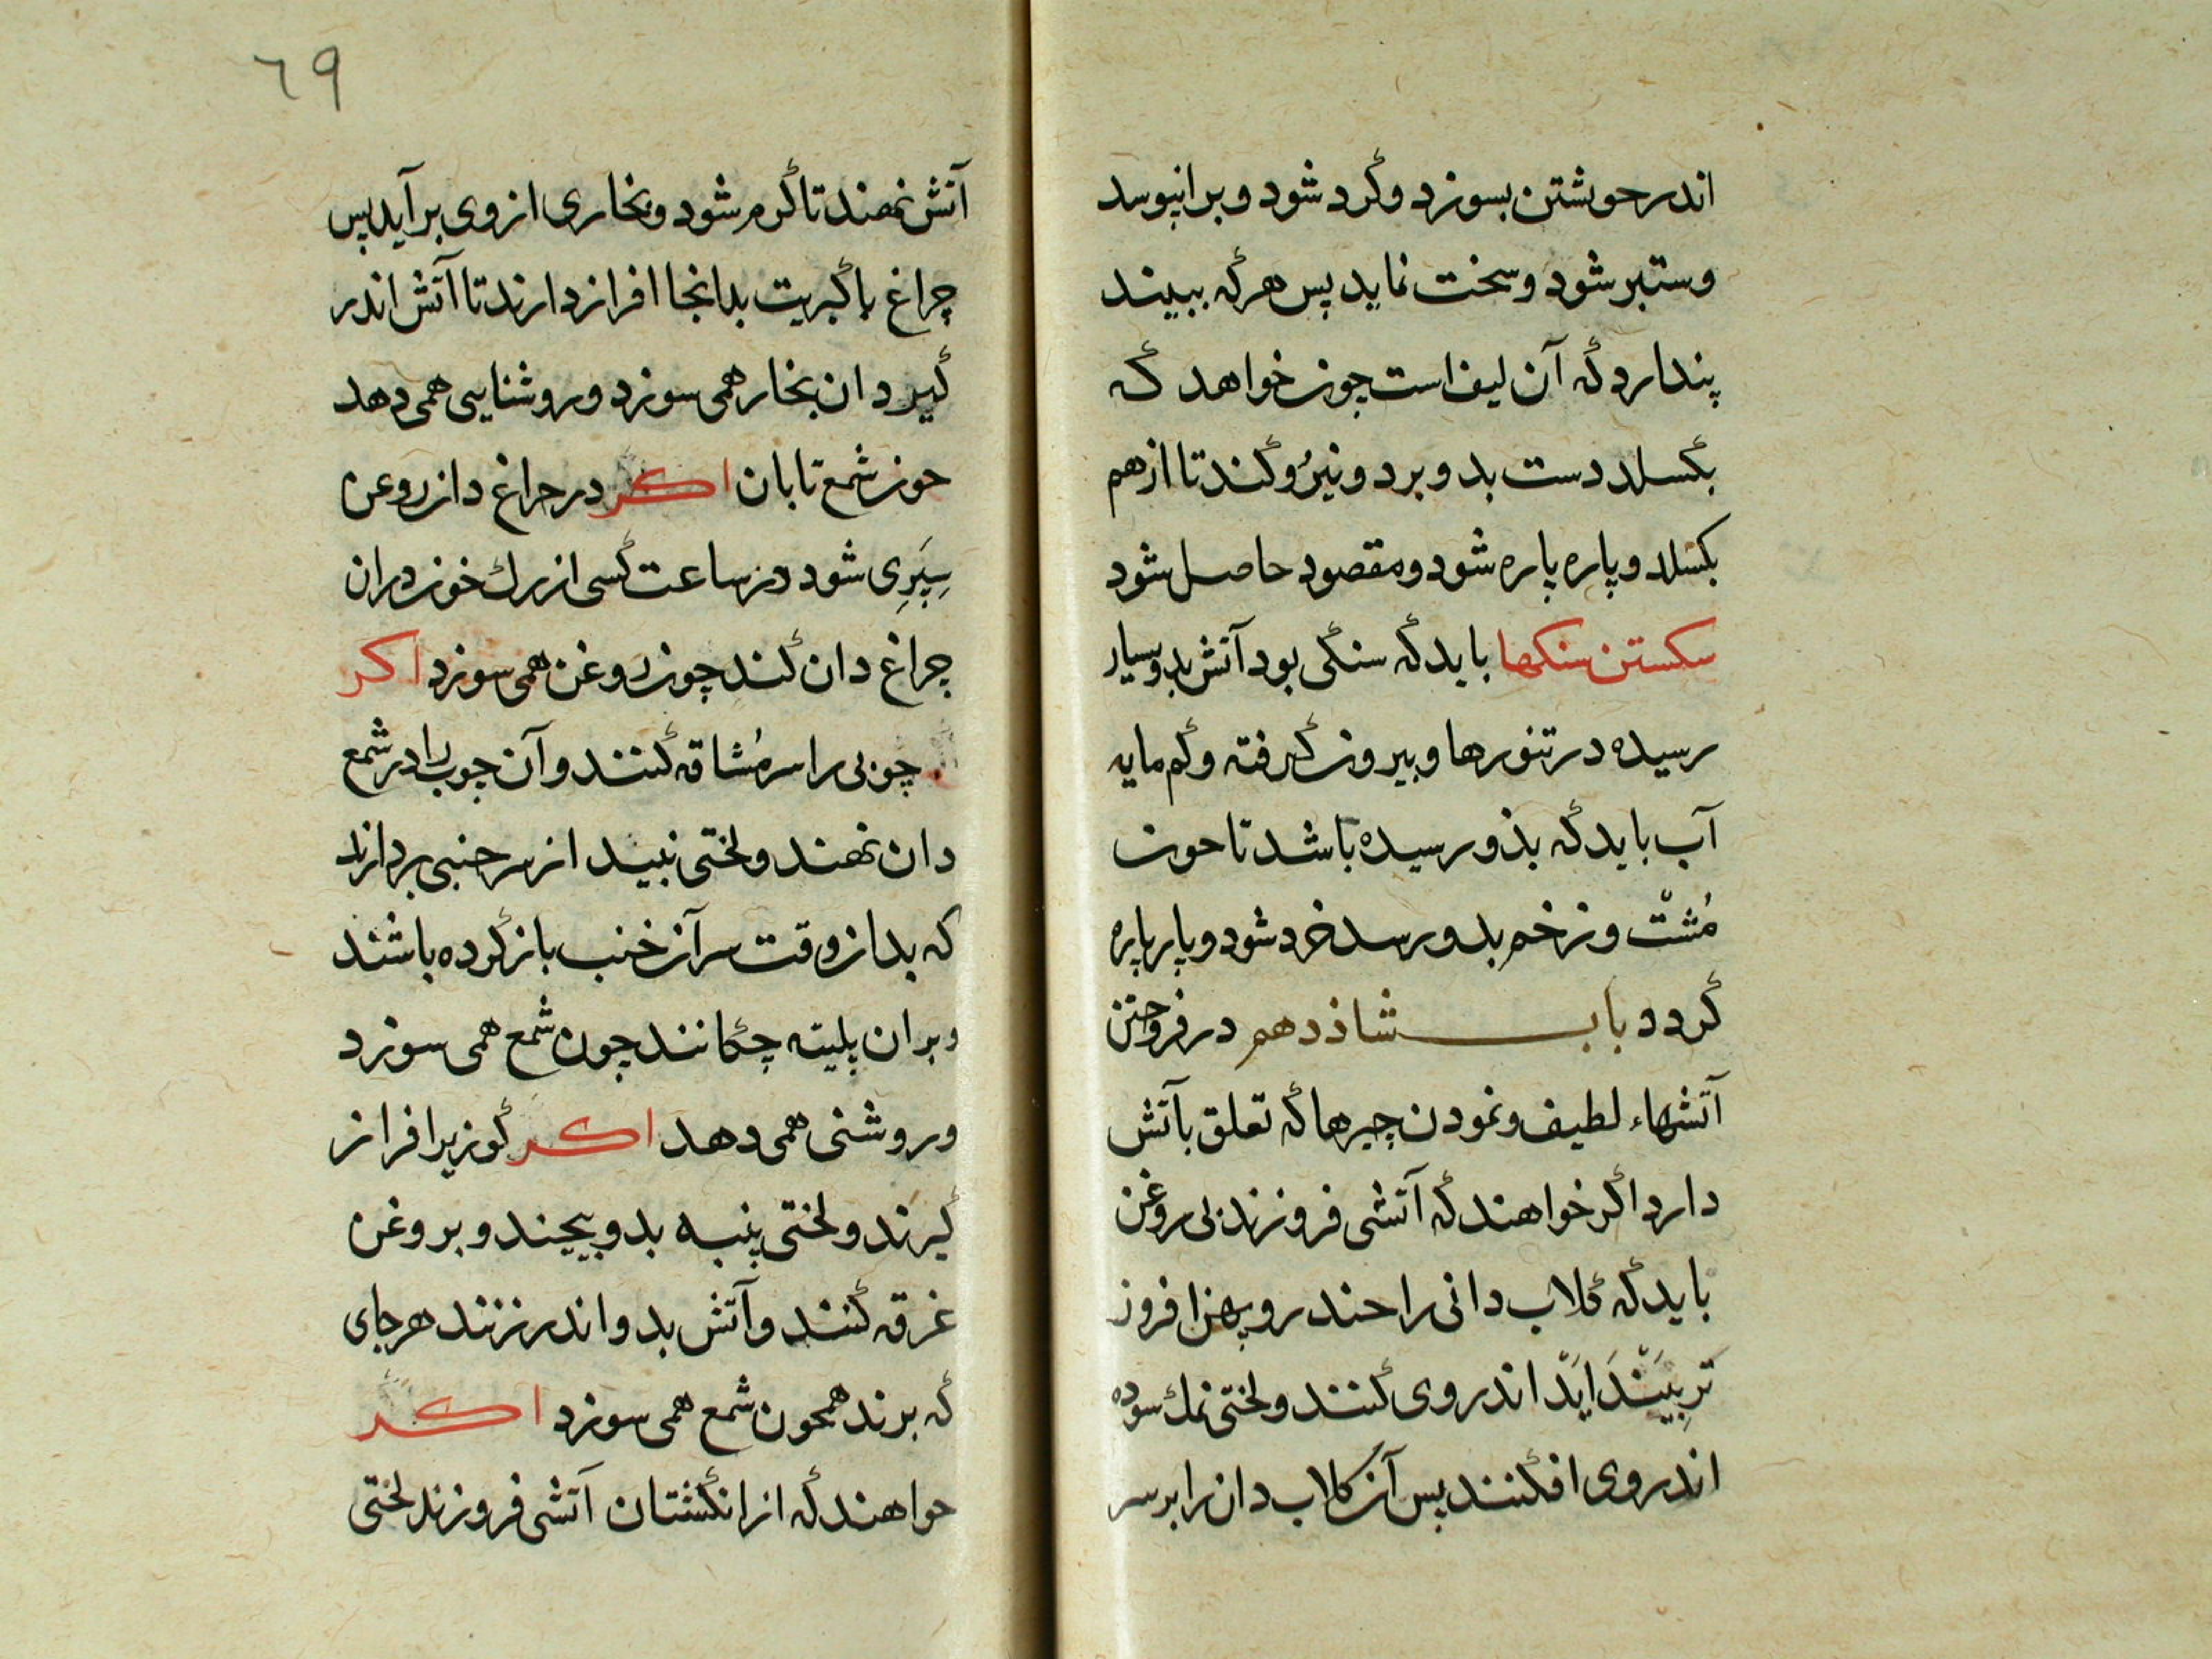 اندر حویشتن بسوزد و کرد شود و برانپوسد
و ستبر شود و سخت نماید پس هرکه ببیند
پندارد که آن لیف است چون خواهد که
بکسلد دست بدو برد و نیرو کند تا از هم
بکسلد و پاره پاره شود و مقصود حاصل شود
سکستن سنکها باید که سنکی بود آتش بدو بسیار
رسیده در تنورها و بیرون کرفته و کم مایه
آب باید که بذو رسیده باشد تا حون
مُشت و زخم بدو رسد خرد شود و پاره پاره
کردد باب شاذدهم در فروختن
آتشهاء لطیف و نمودن چیرها که تعلق بآتش
دارد اکر خواهند که آتشی فروزند بی روغن
باید که کلاب دانی را حند رو بهزا فروز
اندر وی کنند و لختی نمک سوده
اندر وی افکنند پس آن کلاب دان را بر سر
٦٩
آتش نهند تا کرم شود و بخاری از وی برآید پس
چراغ با کبریت بدانجا افراز دارند تا آتش اندر
کیرد ان بخار همی سوزد و روشنایی همی دهد
حون شمع تابان اکر در حراغ دان روعن
سِپَرِی شود در ساعت کسی از رک خون دران
چراغ دان کند چون روغن همی سوزد اکر
چوبی را سر مُشاقه کنند و آن چوب را در شمع
دان نهند و لختی نبید از سر حنبی بردارند
که بدان وقت سر آن خنب باز کرده باشند
و بران پلیته چکانند چون شمع همی سوزد
و روشنی همی دهد اکر کوزیرا افراز
کیرند و لختی پنبه بدو پیچند و بروغن
غرقه کنند و آتش بدو اندر زنند هرجای
که برند همحون شمع همی سوزد اکر
حواهند که از انکشتان آتشی فروزند لختی